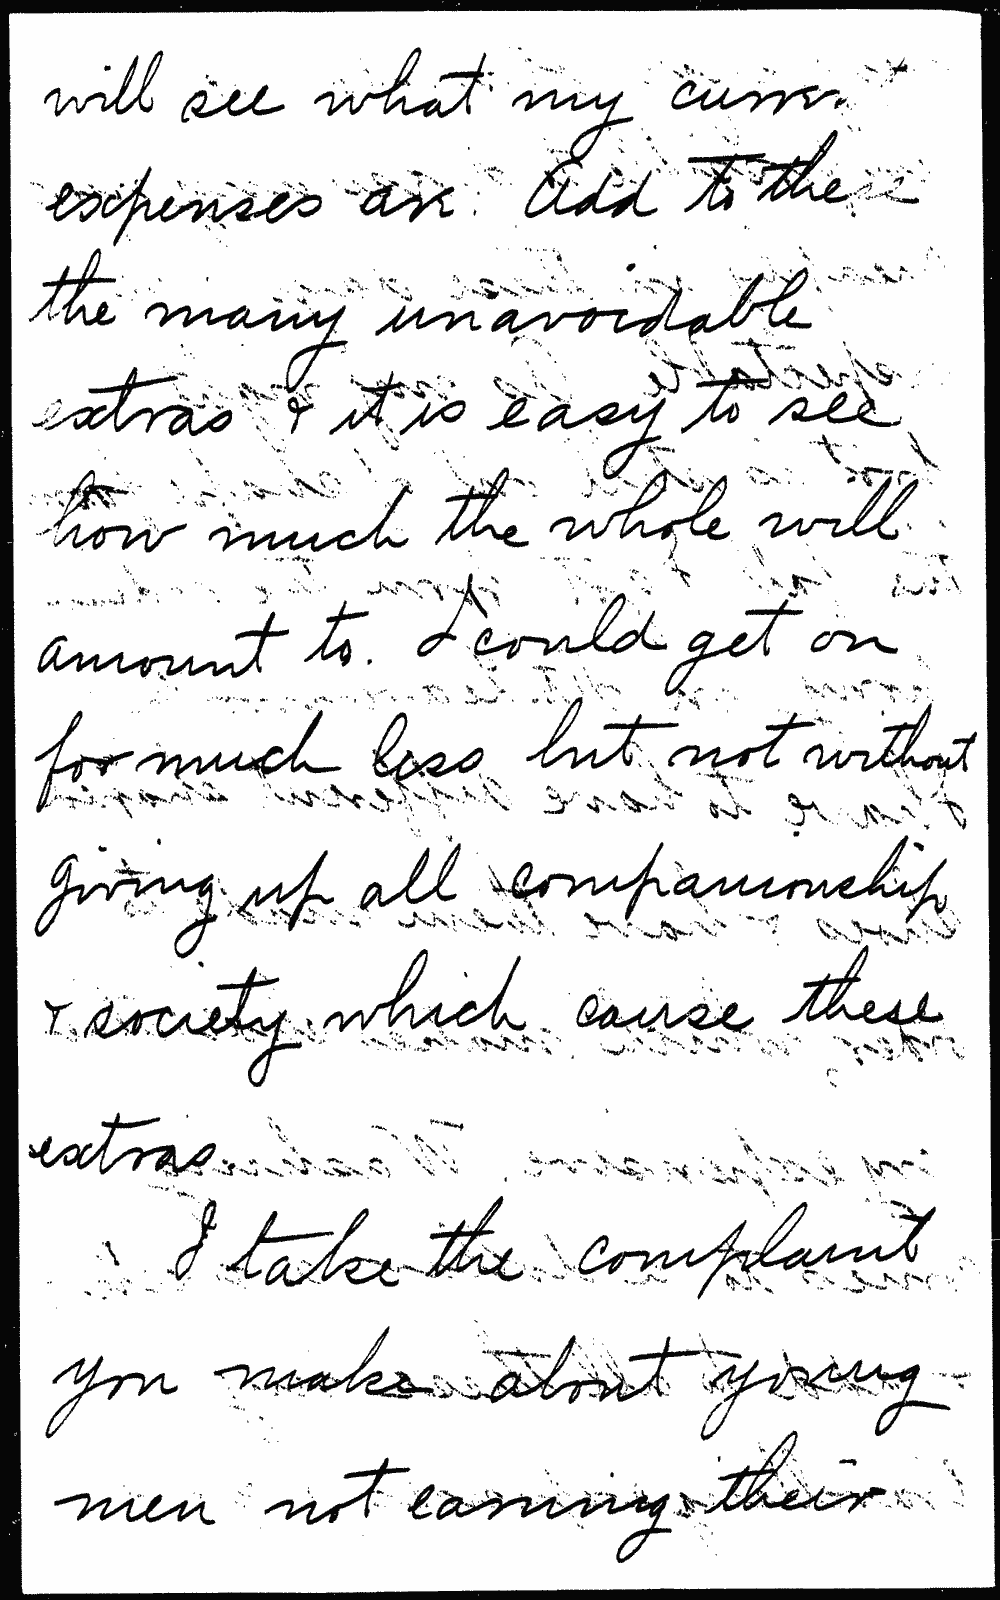 will see what my current
expenses are. Add to these
the many unavoidable
extras & it is easy to see
how much the whole will
amount to. I could get on
for much less but not without
giving up all companionship
& society which cause these
extras
I take the complaint
you make about young
men not earning their